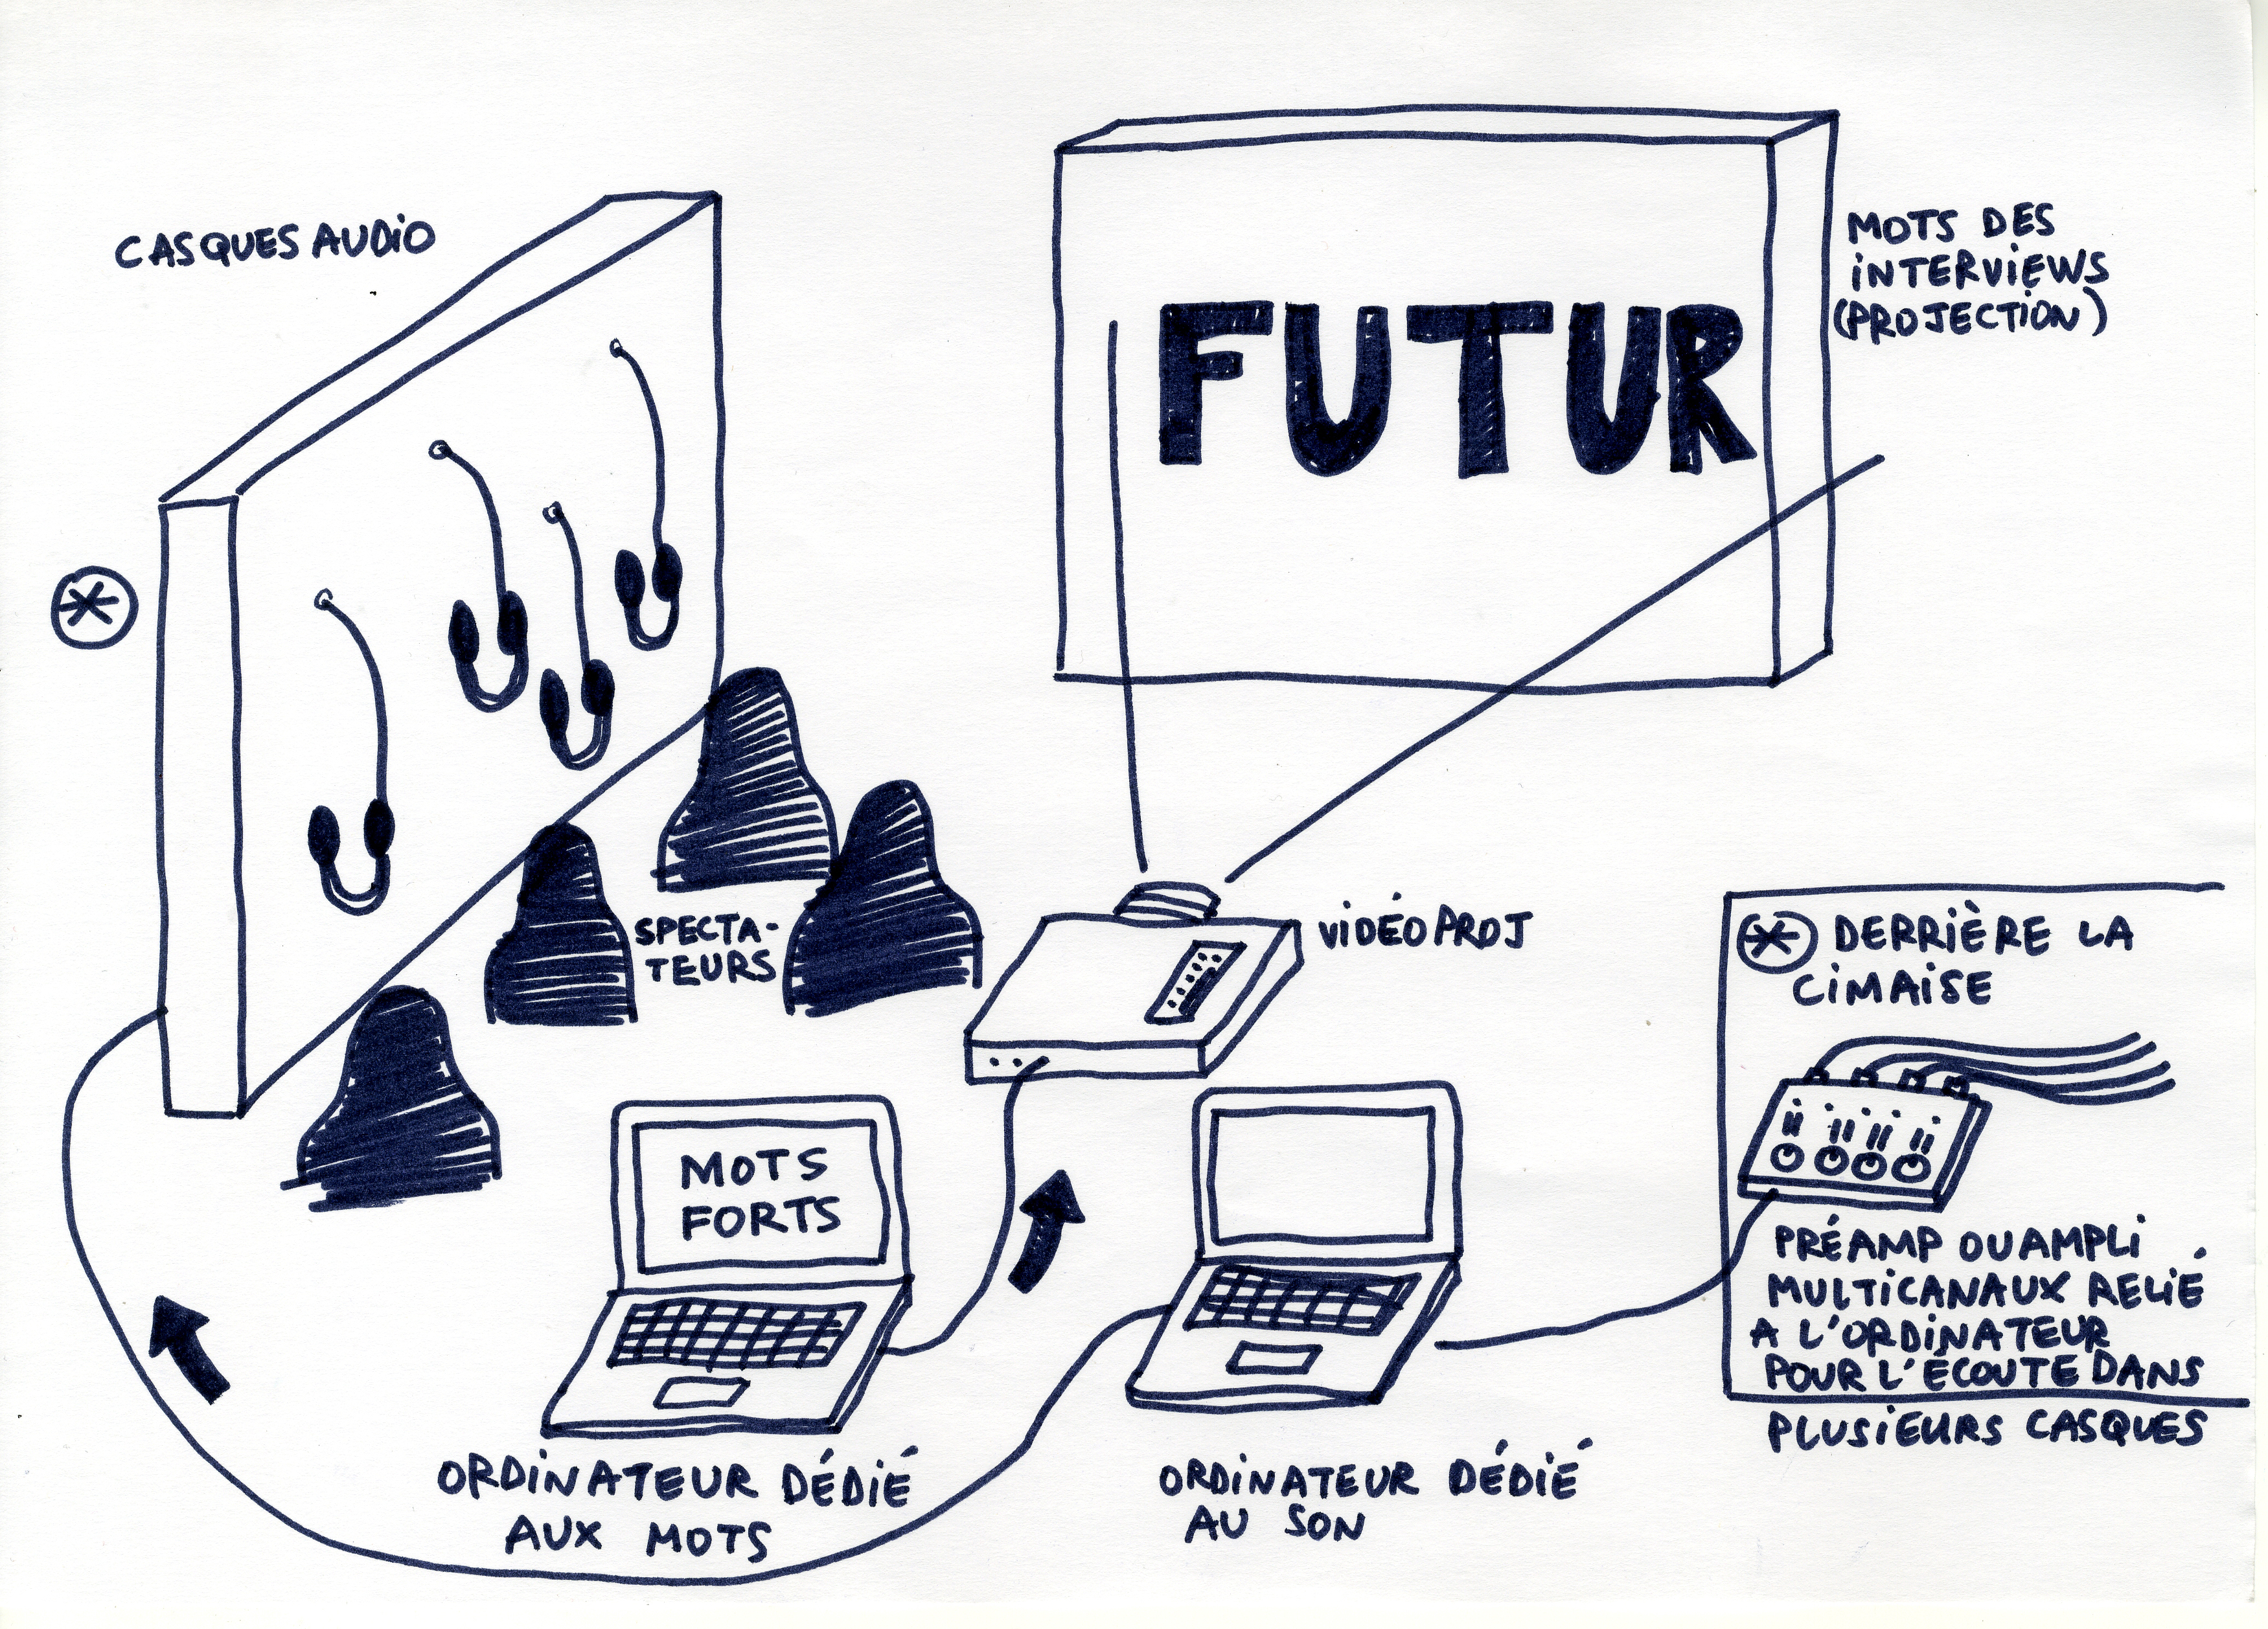 CASQUES AUDIO
FUTUR
MOTS DES
INTERVIEWS
(PROJECTION)
SPECTA-
TEURS
VIDÉOPROJ
MOTS
FORTS
ORDINATEUR DÉDIÉ
AUX MOTS
ORDINATEUR DÉDIÉ
AU SON
DERRIÈRE LA
CIMAISE
PRÉAMP OU AMPLI
MULTICANAUX RELIÉ
A L'ORDINATEUR
POUR L'ÉCOUTE DANS
PLUSIEURS CASQUES